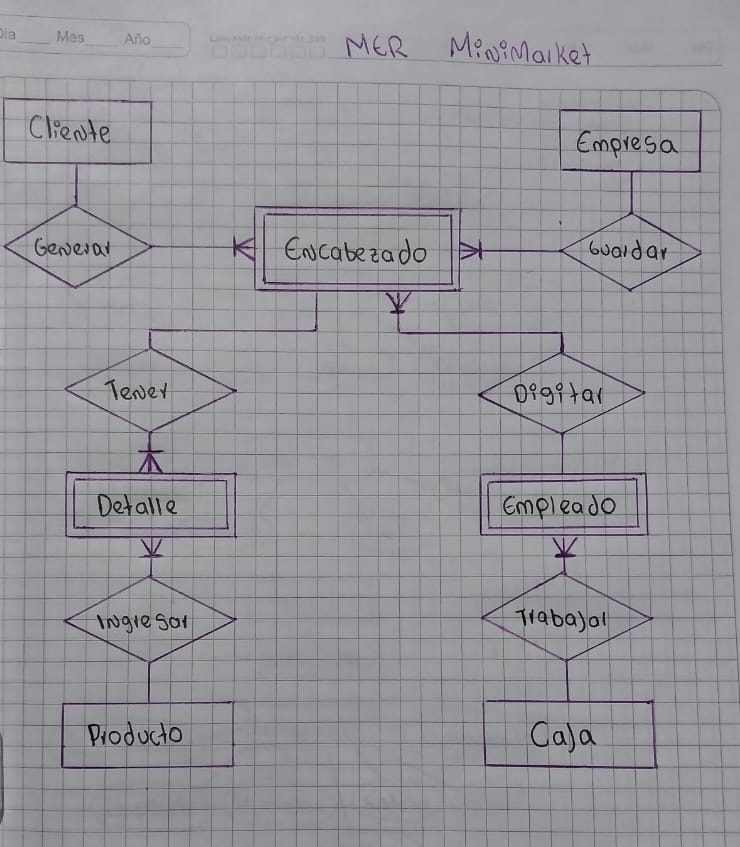 Dia Mes Año
MER MiniMarket
Cliente
Empresa
Generar
Encabezado
Guardar
Tener
Digitar
Detalle
Empleado
Ingresar
Trabajar
Producto
Caja